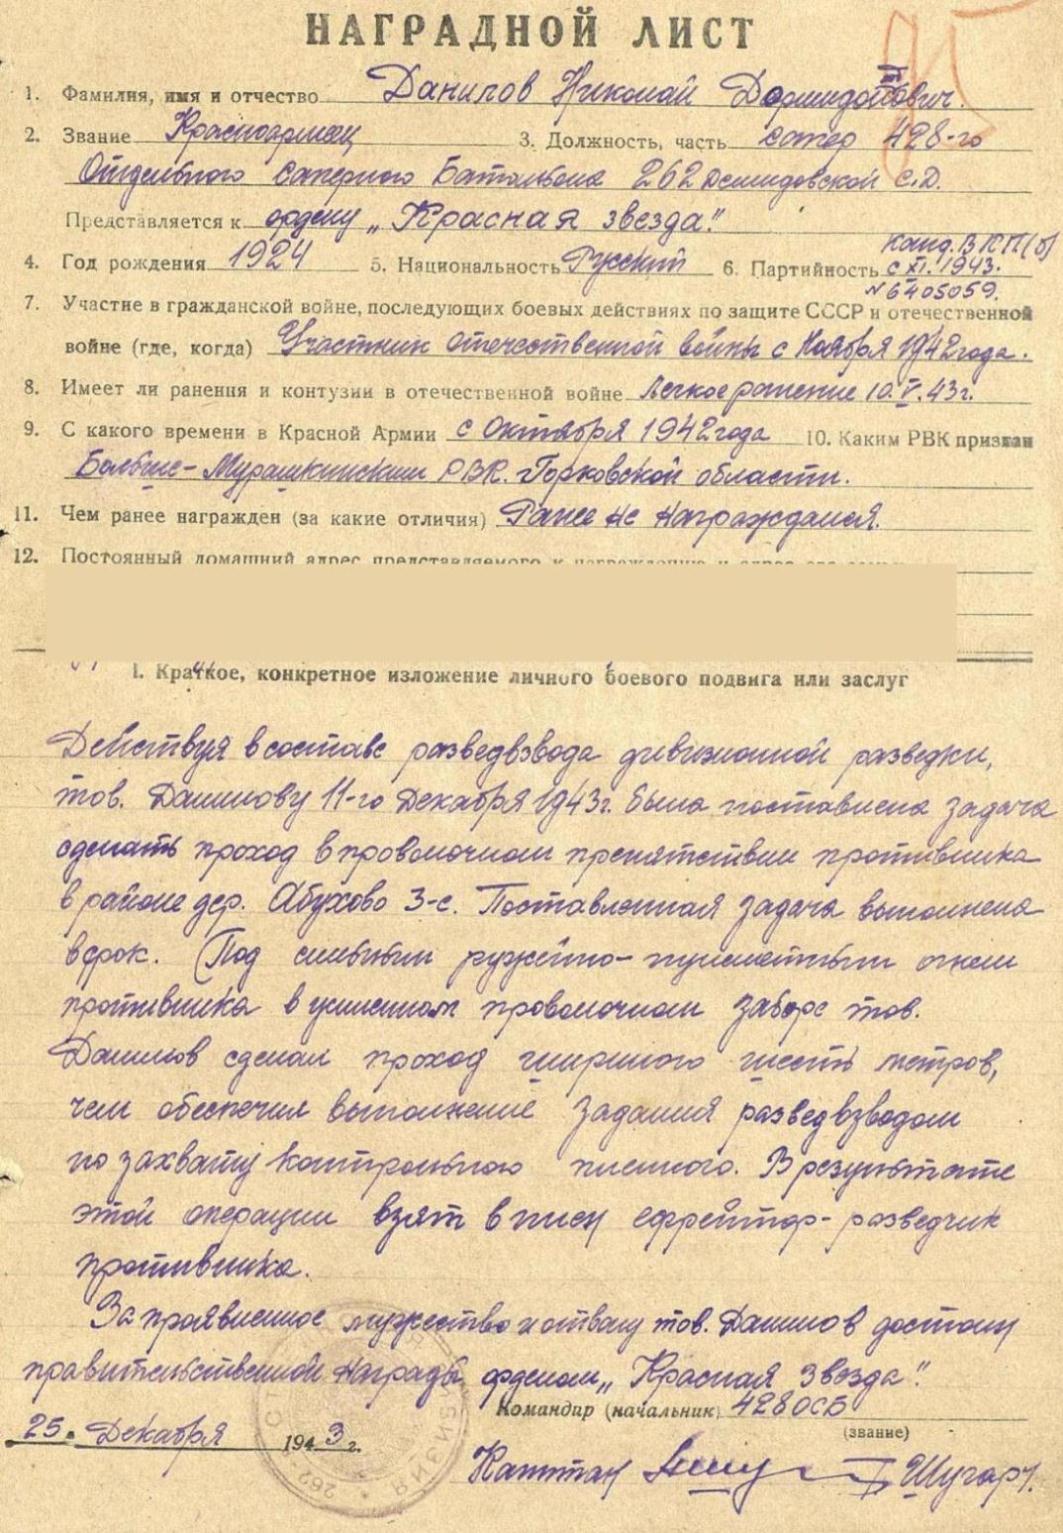 НАГРАДНОЙ ЛИСТ
1. Фамилия, имя и отчество Данилов Николай
2. Звание Красноармеец 3. Должность, часть сапер 428-го
Отдельного Саперного Батальона 262 Демидовской с.д.
Представляется к ордену „Красная звезда".
канд. ВКП(б)
4. Год рождения 1924 5. Национальность Русский 6. Партийность с XI. 1943.
№6405059.
7. Участие в гражданской войне, последующих боевых действиях по защите СССР и отечественной
войне (где, когда) Участник отечественной войны с Ноября 1942 года.
8. Имеет ли ранения и контузии в отечественной войне Легкое ранение 10.V.43г.
9. С какого времени в Красной Армии с Октября 1942 года 10. Каким РВК призван
Больше-Мурашкинским РВК. Горьковской области.
11. Чем ранее награжден (за какие отличия) Ранее не награждался.
12. Постоянный домашний адрес представляемого к награждению и адрес его
I. Краткое, конкретное изложение личного боевого подвига или заслуг
Действуя в составе разведвзвода дивизионной разведки,
тов. Данилову 11-го Декабря 1943г. была поставлена задача
сделать проход в проволочном препятствии противника
в районе дер. Абухово 3-е. Поставленная задача выполнена
в срок. (Под сильным ружейно-пулеметным огнем
противника в усиленном проволочном заборе тов.
Данилов сделал проход шириною шесть метров,
чем обеспечил выполнение задания разведвзводом
по захвату контрольного пленного. В результате
этой операции взят в плен ефрейтор-разведчик
противника.
За проявленное мужество и отвагу тов. Данилов достоин
правительственной награды орденом „Красная Звезда".
Командир (начальник) 428 ОСБ
(звание)
25. Декабря 1943 г.
Капитан Шугар